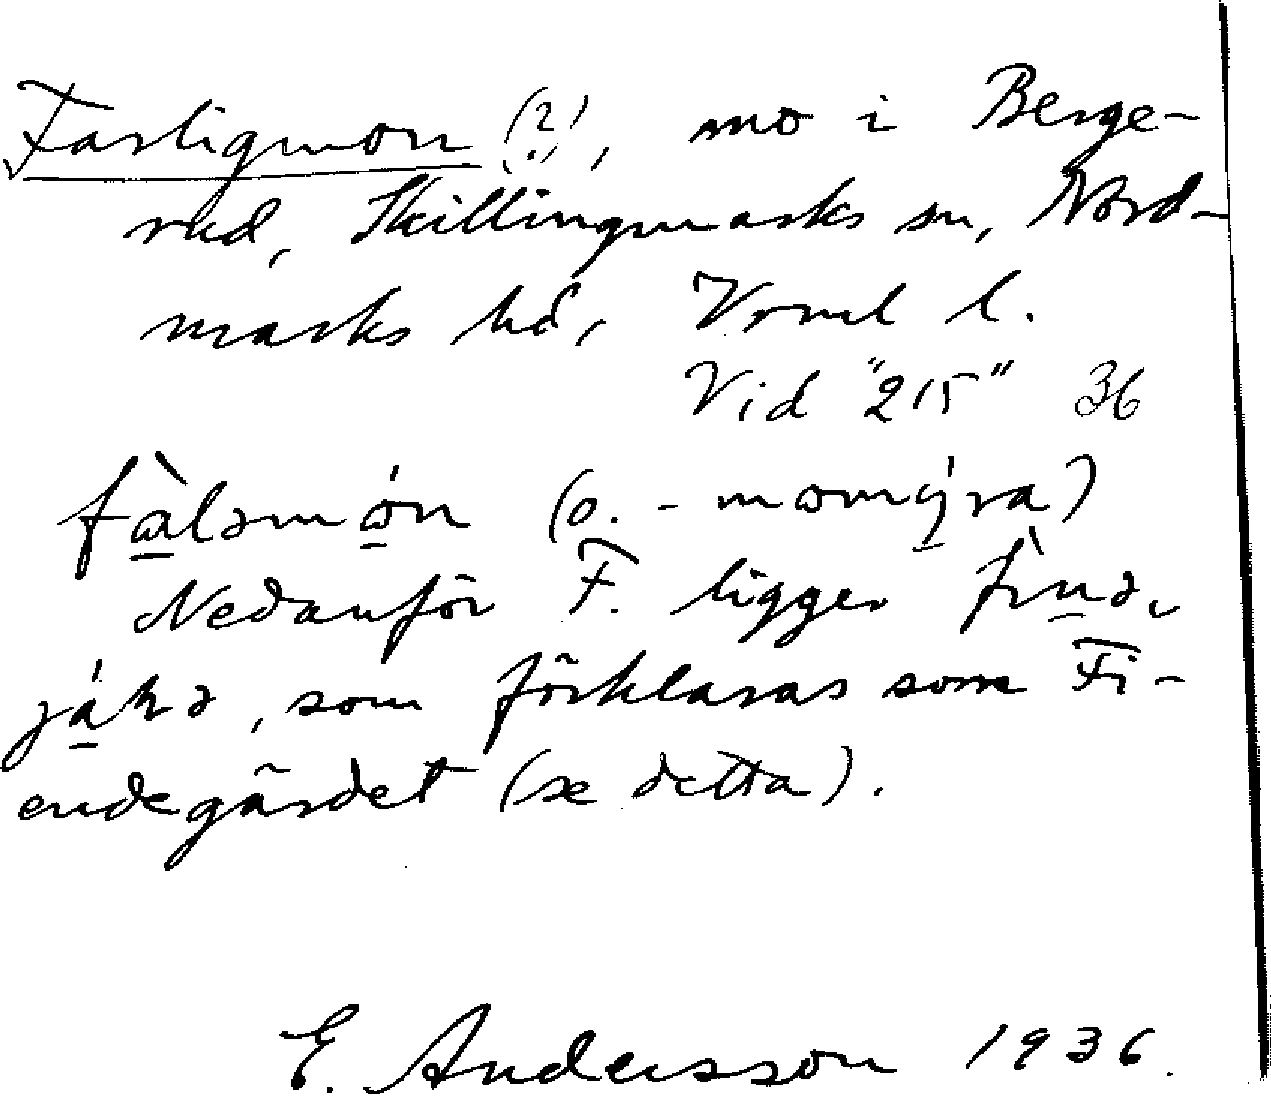 Farligmon (?), mo i Berge-
rud, Skillingmarks sn, Nord-
marks hd, Vrml l.
Vid "215" 36
fàləmón (o. -momýra)
Nedanför F. ligger
, som förklaras som Fi-
endegärdet (se detta).
E. Andersson 1936.